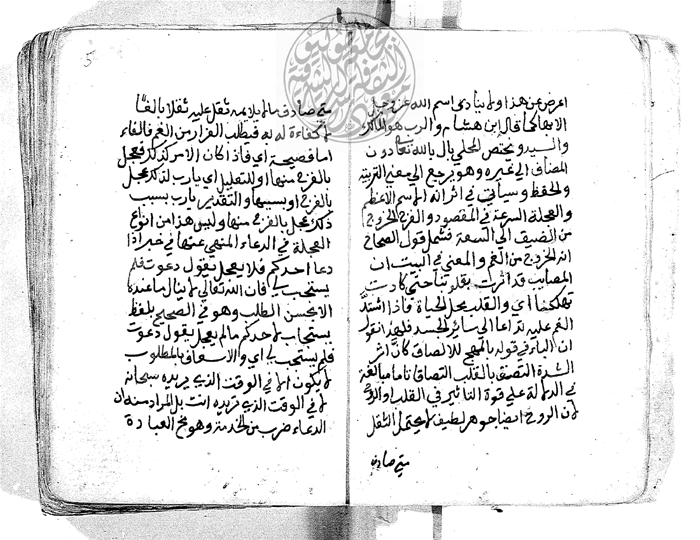 اعرض عن هذا ولا ينادى اسم الله عز وجل
الا بها كما قال ابن هشام والرب هو المالك
والسيد ويختص المحلى بال بالله تعالى دون
المضاف الى غيره وهو يرجع الى معنى التربية
والحفظ وسيأتي في اثر انه الاسم الاعظم
والعجلة السرعة في المقصود والفرج الخروج
من الضيق الى السعة فشمل قول الصحاح
انه الخروج من الغم والمعنى في البيت ان
المصايب قد اثرت بقلوبنا حتى كادت
تهلكنا اي والقلب محل الحياة فاذا اشتد
الغم عليه تداعا الى سائر الجسد فلهذا نقول
ان الباء في قوله بالمهج للالصاق كان اثر
الشدة التصق بالقلب التصاقا تاما مبالغة
في الدلالة على قوة التاثير في القلب والروح
لان الروح ايضا جوهر لطيف لا يحتمل الثقل
متى صادف
5
متى صادف ما لا يلايمه ثقل عليه ثقلا بالغا
لا كفاءة له به فيطلب الفرار من الغم فالفاء
اما فصيحة اي فاذا كان الامر كذلك فعجل
بالفرج منها او للتعليل اي يارب لذلك عجل
بالفرج او بسببها والتقدير يارب بسبب
ذلك عجل بالفرج منها وليس هذا من انواع
العجلة في الدعاء المنهى عنها في خبر اذا
دعا احدكم فلا يعجل يقول دعوت فلم
يستجب لي فان الله تعالى لا ينال ما عنده
الا بحسن الطلب وهو في الصحيح بلفظ
يستجاب لاحدكم ما لم يعجل يقول دعوت
فلم يستجب لي اي والاسعاف بالمطلوب
لا يكون الا في الوقت الذي يريده سبحانه
لا في الوقت الذي تريده انت بل المراد منه ان
الدعاء ضرب من الخدمة وهو مخ العبادة